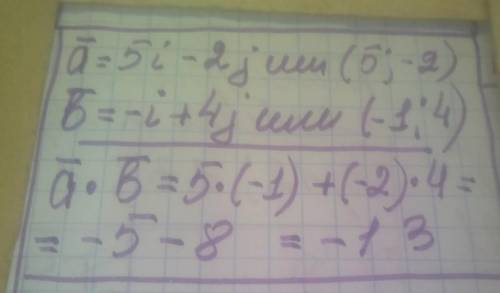 a̅ = 5i - 2j или (5; -2)
b̅ = -i + 4j или (-1; 4)
a̅ · b̅ = 5 · (-1) + (-2) · 4 =
= -5 - 8 = -13